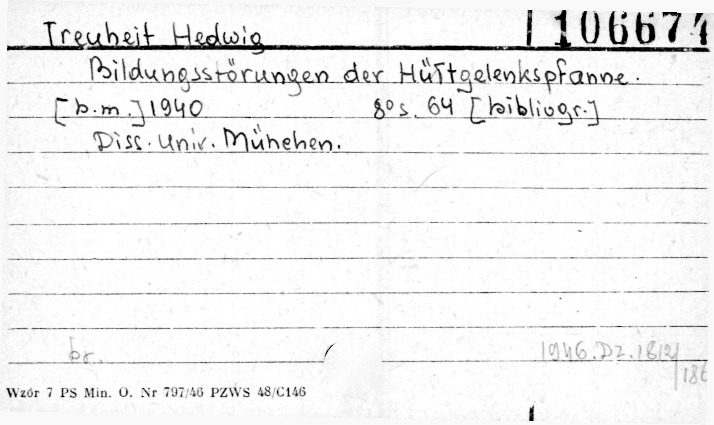 Treuheit Hedwig 106674
Bildungsstörungen der Hüftgelenkspfanne.
[b.m.] 1940 8° s. 64 [bibliogr.]
Diss. Univ. München.
br. 1946.Dz.1812/
186
Wzór 7 PS Min. O. Nr 797/46 PZWS 48/C146